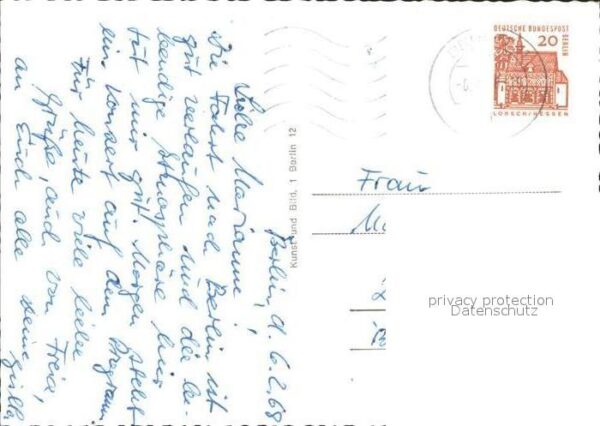 Berlin, d. 6.2.68
Liebe Marianne!
Die Fahrt nach Berlin ist
gut verlaufen und die le-
bendige Atmosphäre hier
tut mir gut. Morgen steht
ein Konzert auf dem Programm
Für heute viele liebe
Grüße, auch von
an Euch alle
Kunst und Bild, 1 Berlin 12
DEUTSCHE BUNDESPOST
BERLIN
20
LORSCH/HESSEN
Frau
privacy protection
Datenschutz